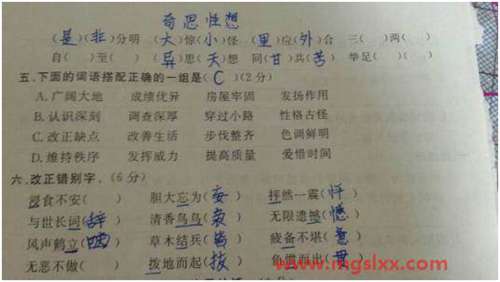 奇思怪想
(是)(非)分明 (大)惊(小)怪 (里)应(外)合 三( )两( )
自( )至( ) (异)思(天)想 同(甘)共(苦) 举足( )( )
五.下面的词语搭配正确的一组是(C)(2分)
A.广阔大地 成绩优异 房屋牢固 发扬作用
B.认识深刻 调查深厚 穿过小路 性格古怪
C.改正缺点 改善生活 步伐整齐 色调鲜明
D.维持秩序 发挥威力 提高质量 爱惜时间
六.改正错别字。(6分)
浸食不安( ) 胆大忘为(妄) 抨然一震(怦)
与世长词(辞) 清香鸟鸟(袅) 无限遗撼(憾)
风声鹤立(唳) 草木结兵(皆) 疲备不堪(惫)
无恶不做( ) 拨地而起(拔) 鱼灌而出(贯)
www.mgslxx.com